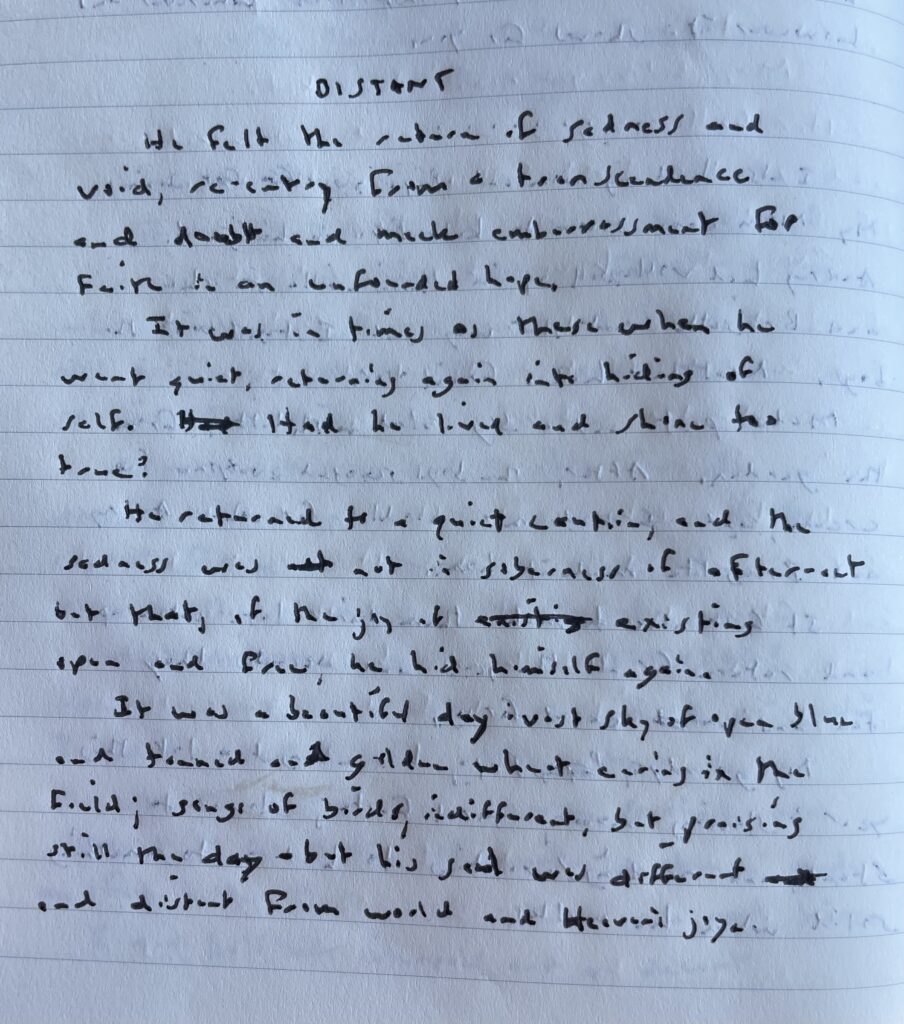 DISTANT
He felt the return of sadness and
void, re-entry from a transcendence
and doubt and meek embarrassment for
Faith in an unfounded hope.
It was in times as these when he
went quiet, returning again into hiding of
self. Had he lived and shine too
true?
He returned to a quiet and the
sadness was not in soberness of
but that, of the joy of existing existing
open and free, he hid himself again.
It was a beautiful day: vast sky of open blue
and tanned and golden wheat in the
Field; songs of birds, indifferent, but praising
still the day - but his soul was different
and distant from world and Heaven's joys.